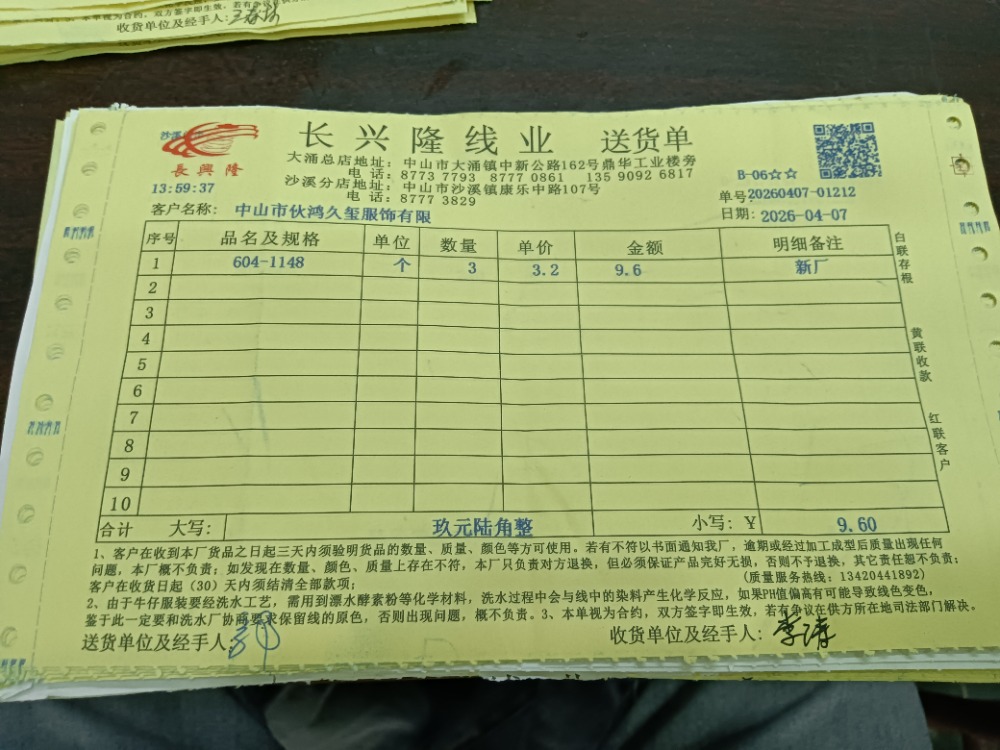 收货单位及经手人:
长兴隆线业 送货单
長興隆
大涌总店地址: 中山市大涌镇中新公路162号鼎华工业楼旁
电 话: 8773 7793 8777 0861 135 9092 6817
沙溪分店地址: 中山市沙溪镇康乐中路107号
电 话: 8777 3829
13:59:37
B-06☆☆
单号:20260407-01212
客户名称: 中山市伙鸿久玺服饰有限
日期: 2026-04-07
序号 品名及规格 单位 数量 单价 金额 明细备注
1 604-1148 个 3 3.2 9.6 新厂
2
3
4
5
6
7
8
9
10
合计 大写: 玖元陆角整 小写: ¥ 9.60
白联存根
黄联收款
红联客户
1、客户在收到本厂货品之日起三天内须验明货品的数量、质量、颜色等方可使用。若有不符以书面通知我厂，逾期或经过加工成型后质量出现任何
问题，本厂概不负责；如发现在数量、颜色、质量上存在不符，本厂只负责对方退换，但必须保证产品完好无损，否则不予退换，其它责任恕不负责；
客户在收货日起（30）天内须结清全部款项； (质量服务热线: 13420441892)
2、由于牛仔服装要经洗水工艺，需用到漂水酵素粉等化学材料，洗水过程中会与线中的染料产生化学反应，如果PH值偏高有可能导致线色变色，
鉴于此一定要和洗水厂协商要求保留线的原色，否则出现问题，概不负责。3、本单视为合约，双方签字即生效，若有争议在供方所在地司法部门解决。
送货单位及经手人: 收货单位及经手人: